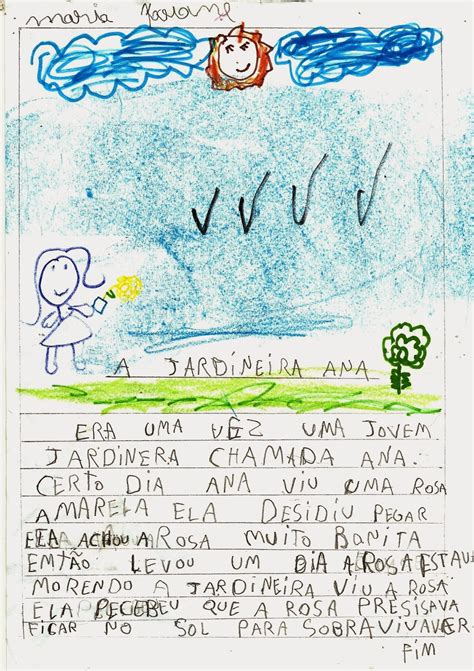 maria
A JARDINEIRA ANA
ERA UMA VEZ UMA JOVEM
JARDINERA CHAMADA ANA.
CERTO DIA ANA VIU UMA ROSA
AMARELA ELA DESIDIU PEGAR
ELA ACHOU A ROSA MUITO BANITA
EMTÃO LEVOU UM DIA A ROSA ESTAU
MORENDO A JARDINEIRA VIU A ROSA
ELA PECEBEU QUE A ROSA PRESISAVA
FICAR NO SOL PARA SOBRAVIVAVER
FIM